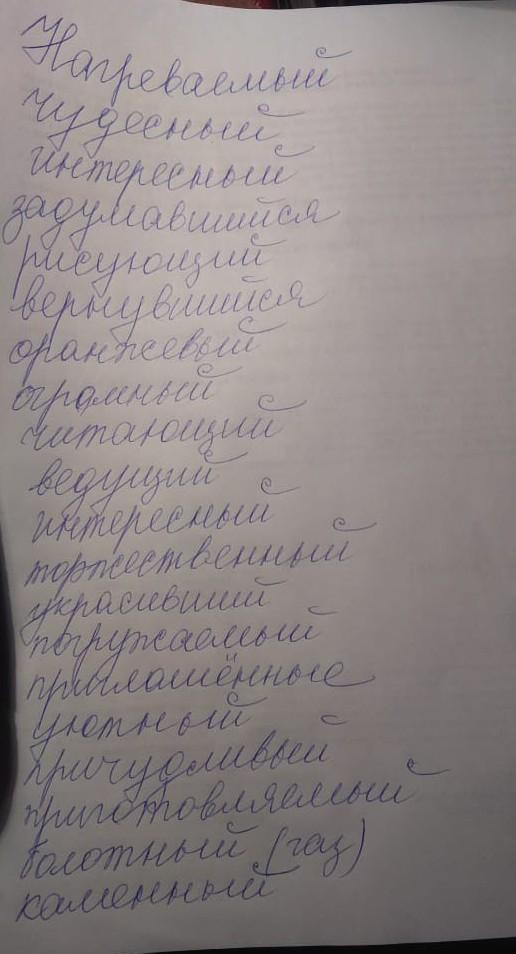 Нагреваемый
чудесный
интересный
задумавшийся
рисующий
вернувшийся
оранжевый
огромный
читающий
ведущий
интересный
торжественный
украсивший
погружаемый
приглашённые
уютный
причудливый
приготовляемый
болотный (газ)
каменный